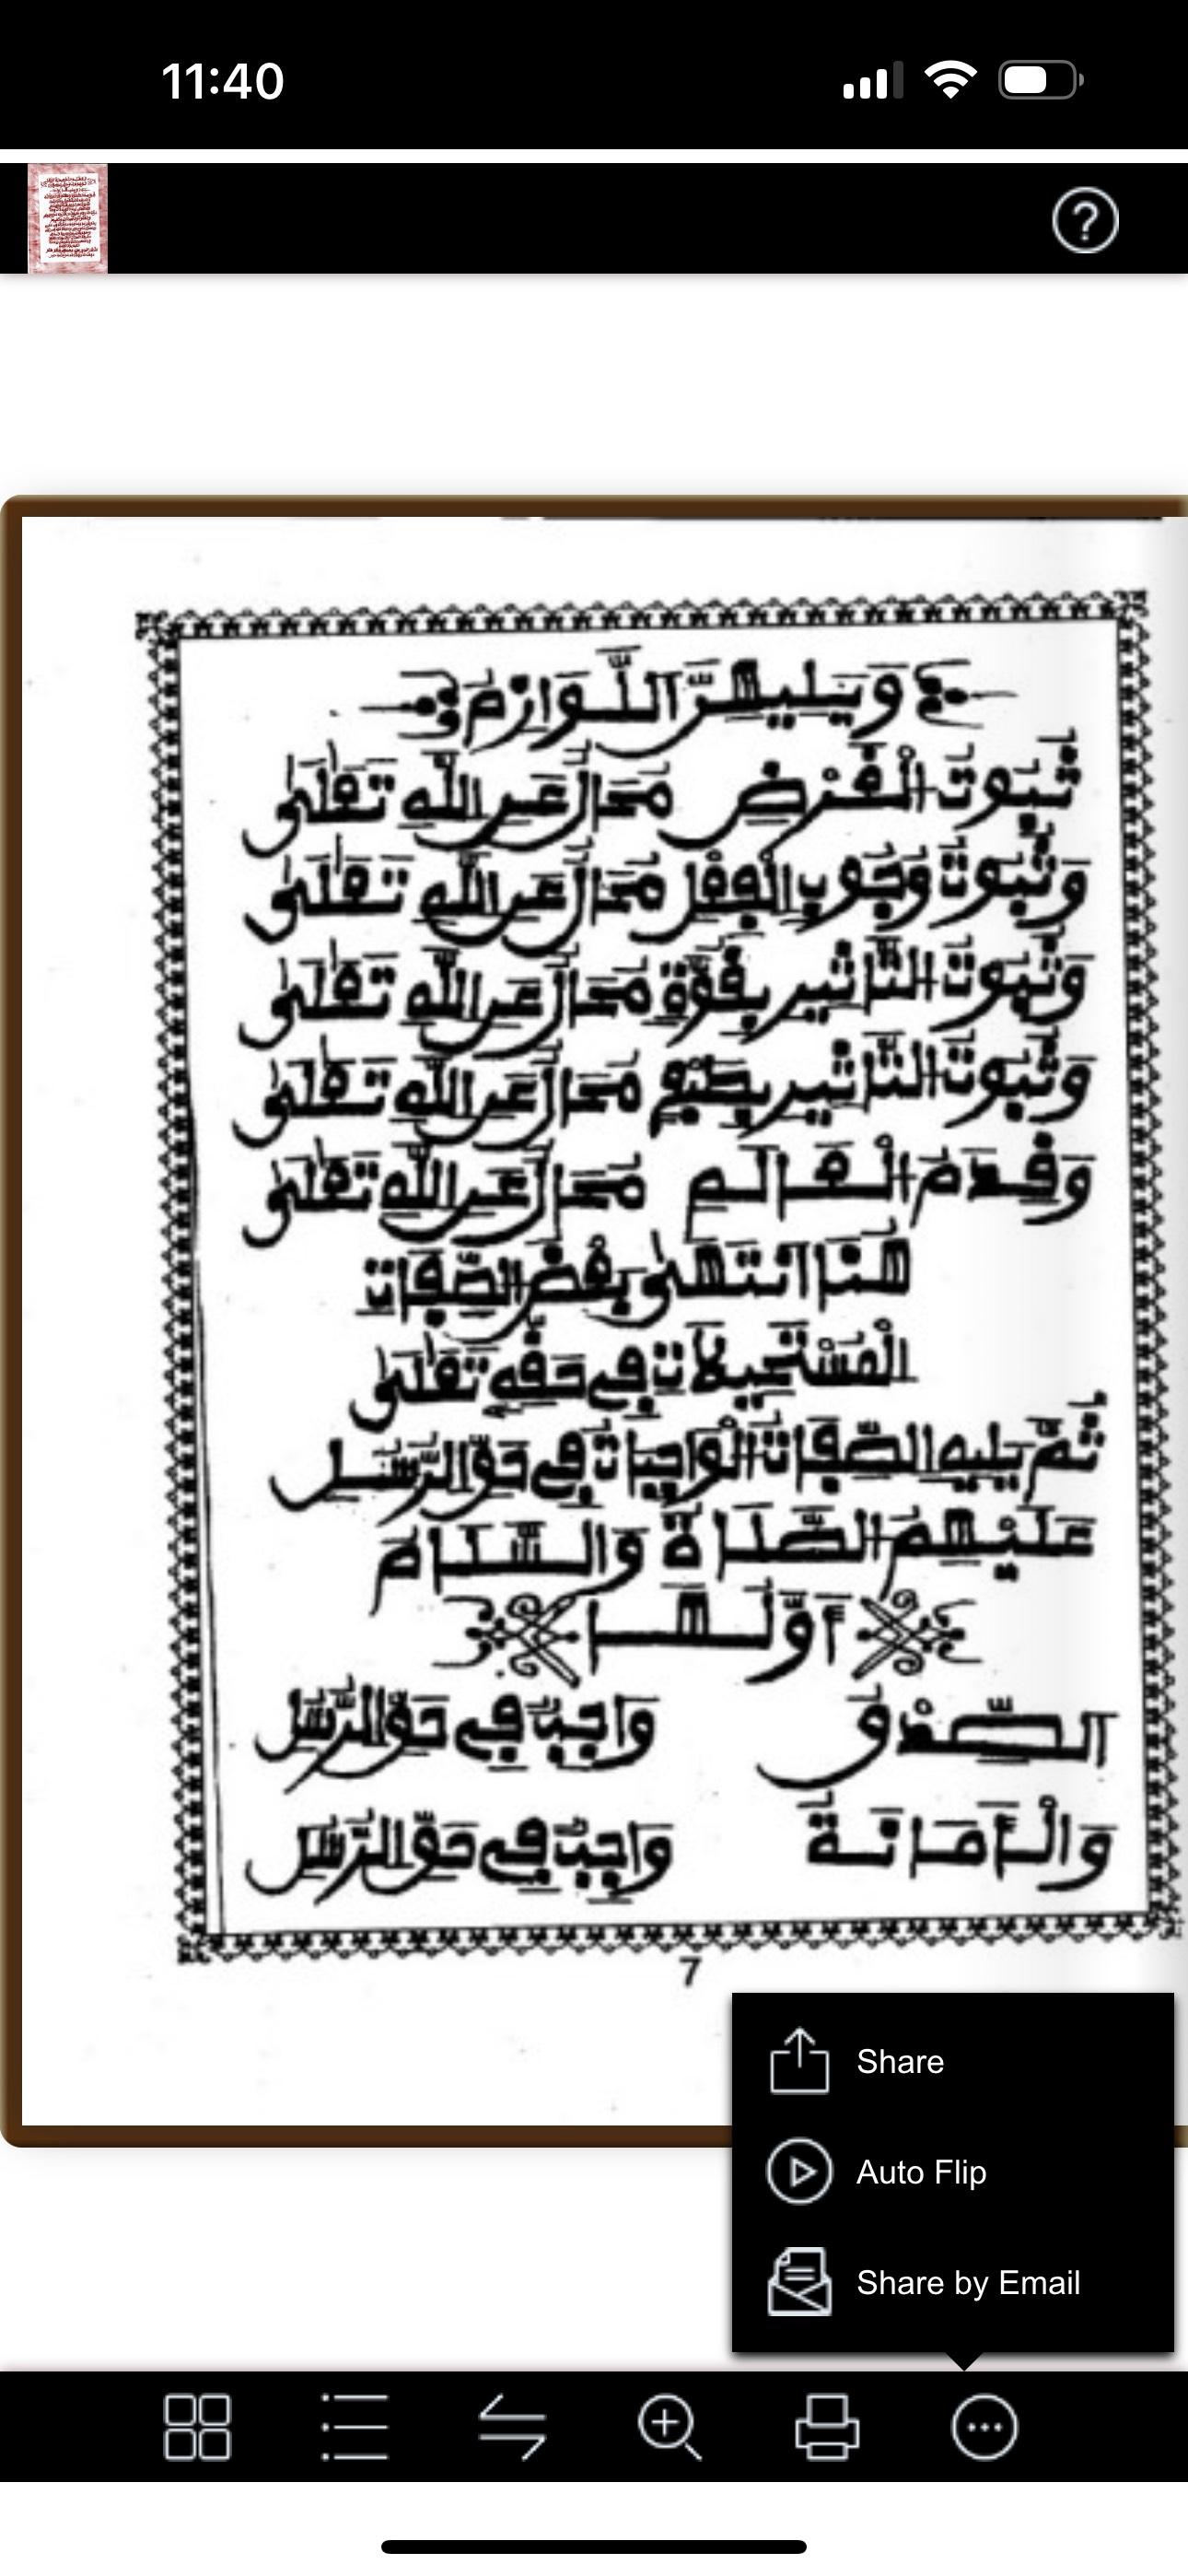 11:40
وَيَلِيهِنَّ اللَّوَازِمُ
ثُبُوتُ الْغَرَضِ مُحَالٌ عَنِ اللَّهِ تَعَالَى
وَثُبُوتُ وُجُوبِ الْفِعْلِ مُحَالٌ عَنِ اللَّهِ تَعَالَى
وَثُبُوتُ التَّأْثِيرِ بِقُوَّةٍ مُحَالٌ عَنِ اللَّهِ تَعَالَى
وَثُبُوتُ التَّأْثِيرِ بِطَبْعٍ مُحَالٌ عَنِ اللَّهِ تَعَالَى
وَقِدَمُ الْعَالَمِ مُحَالٌ عَنِ اللَّهِ تَعَالَى
هُنَا انْتَهَى بَعْضُ الصِّفَاتِ
الْمُسْتَحِيلَاتِ فِي حَقِّهِ تَعَالَى
ثُمَّ يَلِيهِ الصِّفَاتُ الْوَاجِبَاتُ فِي حَقِّ الرُّسُلِ
عَلَيْهِمُ الصَّلَاةُ وَالسَّلَامُ
أَوَّلُهَا
الصِّدْقُ وَاجِبٌ فِي حَقِّ الرُّسُلِ
وَالْأَمَانَةُ وَاجِبٌ فِي حَقِّ الرُّسُلِ
7
Share
Auto Flip
Share by Email